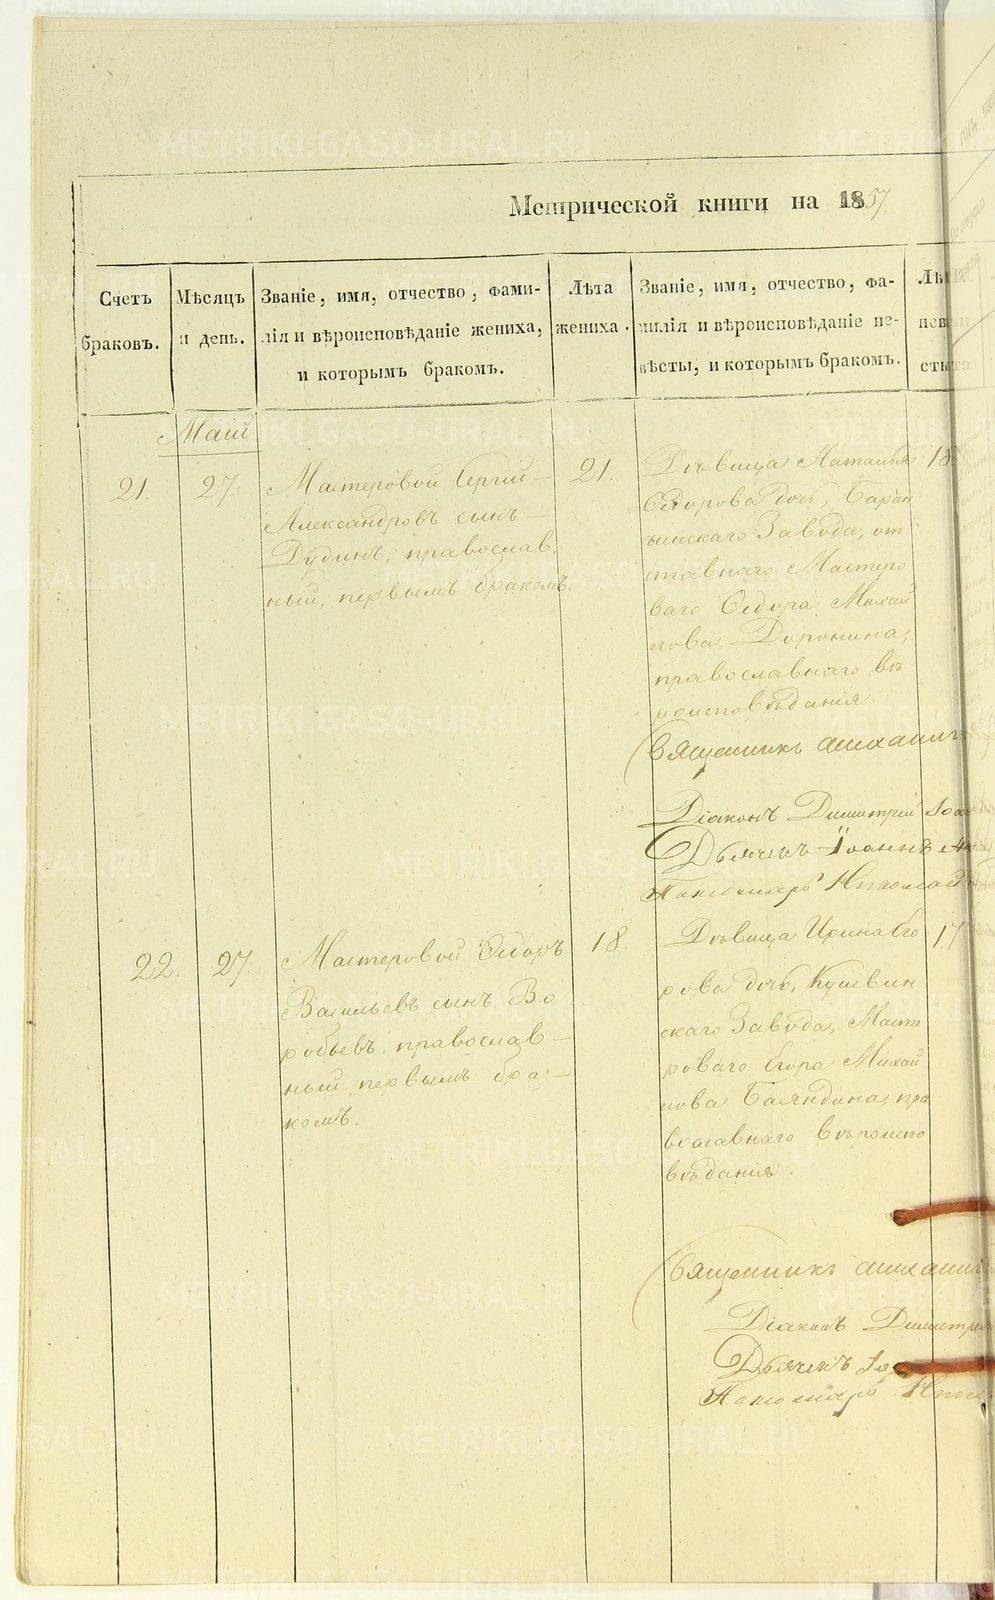 Метрической книги на 1857
Счетъ браковъ.
Мѣсяцъ и день.
Званіе, имя, отчество, фами-
лія и вѣроисповѣданіе жениха,
и которымъ бракомъ.
Лѣта жениха.
Званіе, имя, отчество, фа-
милія и вѣроисповѣданіе не-
вѣсты, и которымъ бракомъ.
Маій
21. 27.
Мастеровой Сергій
Александровъ сынъ
Дудинъ, православ
ный, первымъ бракомъ.
21.
Дѣвица Наталья
Ѳедорова дочь, Баран
чинскаго Завода, от
ставнаго Мастеро
ваго Ѳедора Михай
лова Доронина,
православнаго вѣ
роисповѣданія.
18
Священникъ
Діаконъ Димитрій
Дьячекъ Іоаннъ
Пономарь Николай
22. 27.
Мастеровой Ѳедоръ
Васильевъ сынъ Во
робьевъ, православ-
ный, первымъ бра-
комъ.
18.
Дѣвица Ирина Его
рова дочь, Кушвин
скаго Завода, Масте
роваго Егора Михай
лова Баяндина, пра
вославнаго вѣроиспо
вѣданія.
17
Священникъ
Діаконъ
Дьячекъ
Пономарь
METRIKI.GASO-URAL.RU